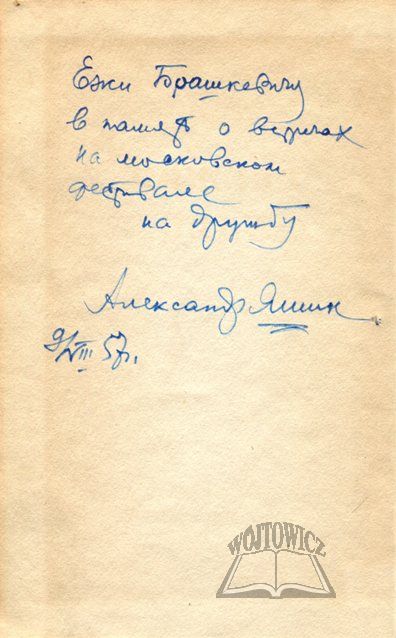 Ежи Брашкевичу
в память о встречах
на московском
фестивале
на дружбу
Александр Яшин
9/VIII 57 г.
WÓJTOWICZ